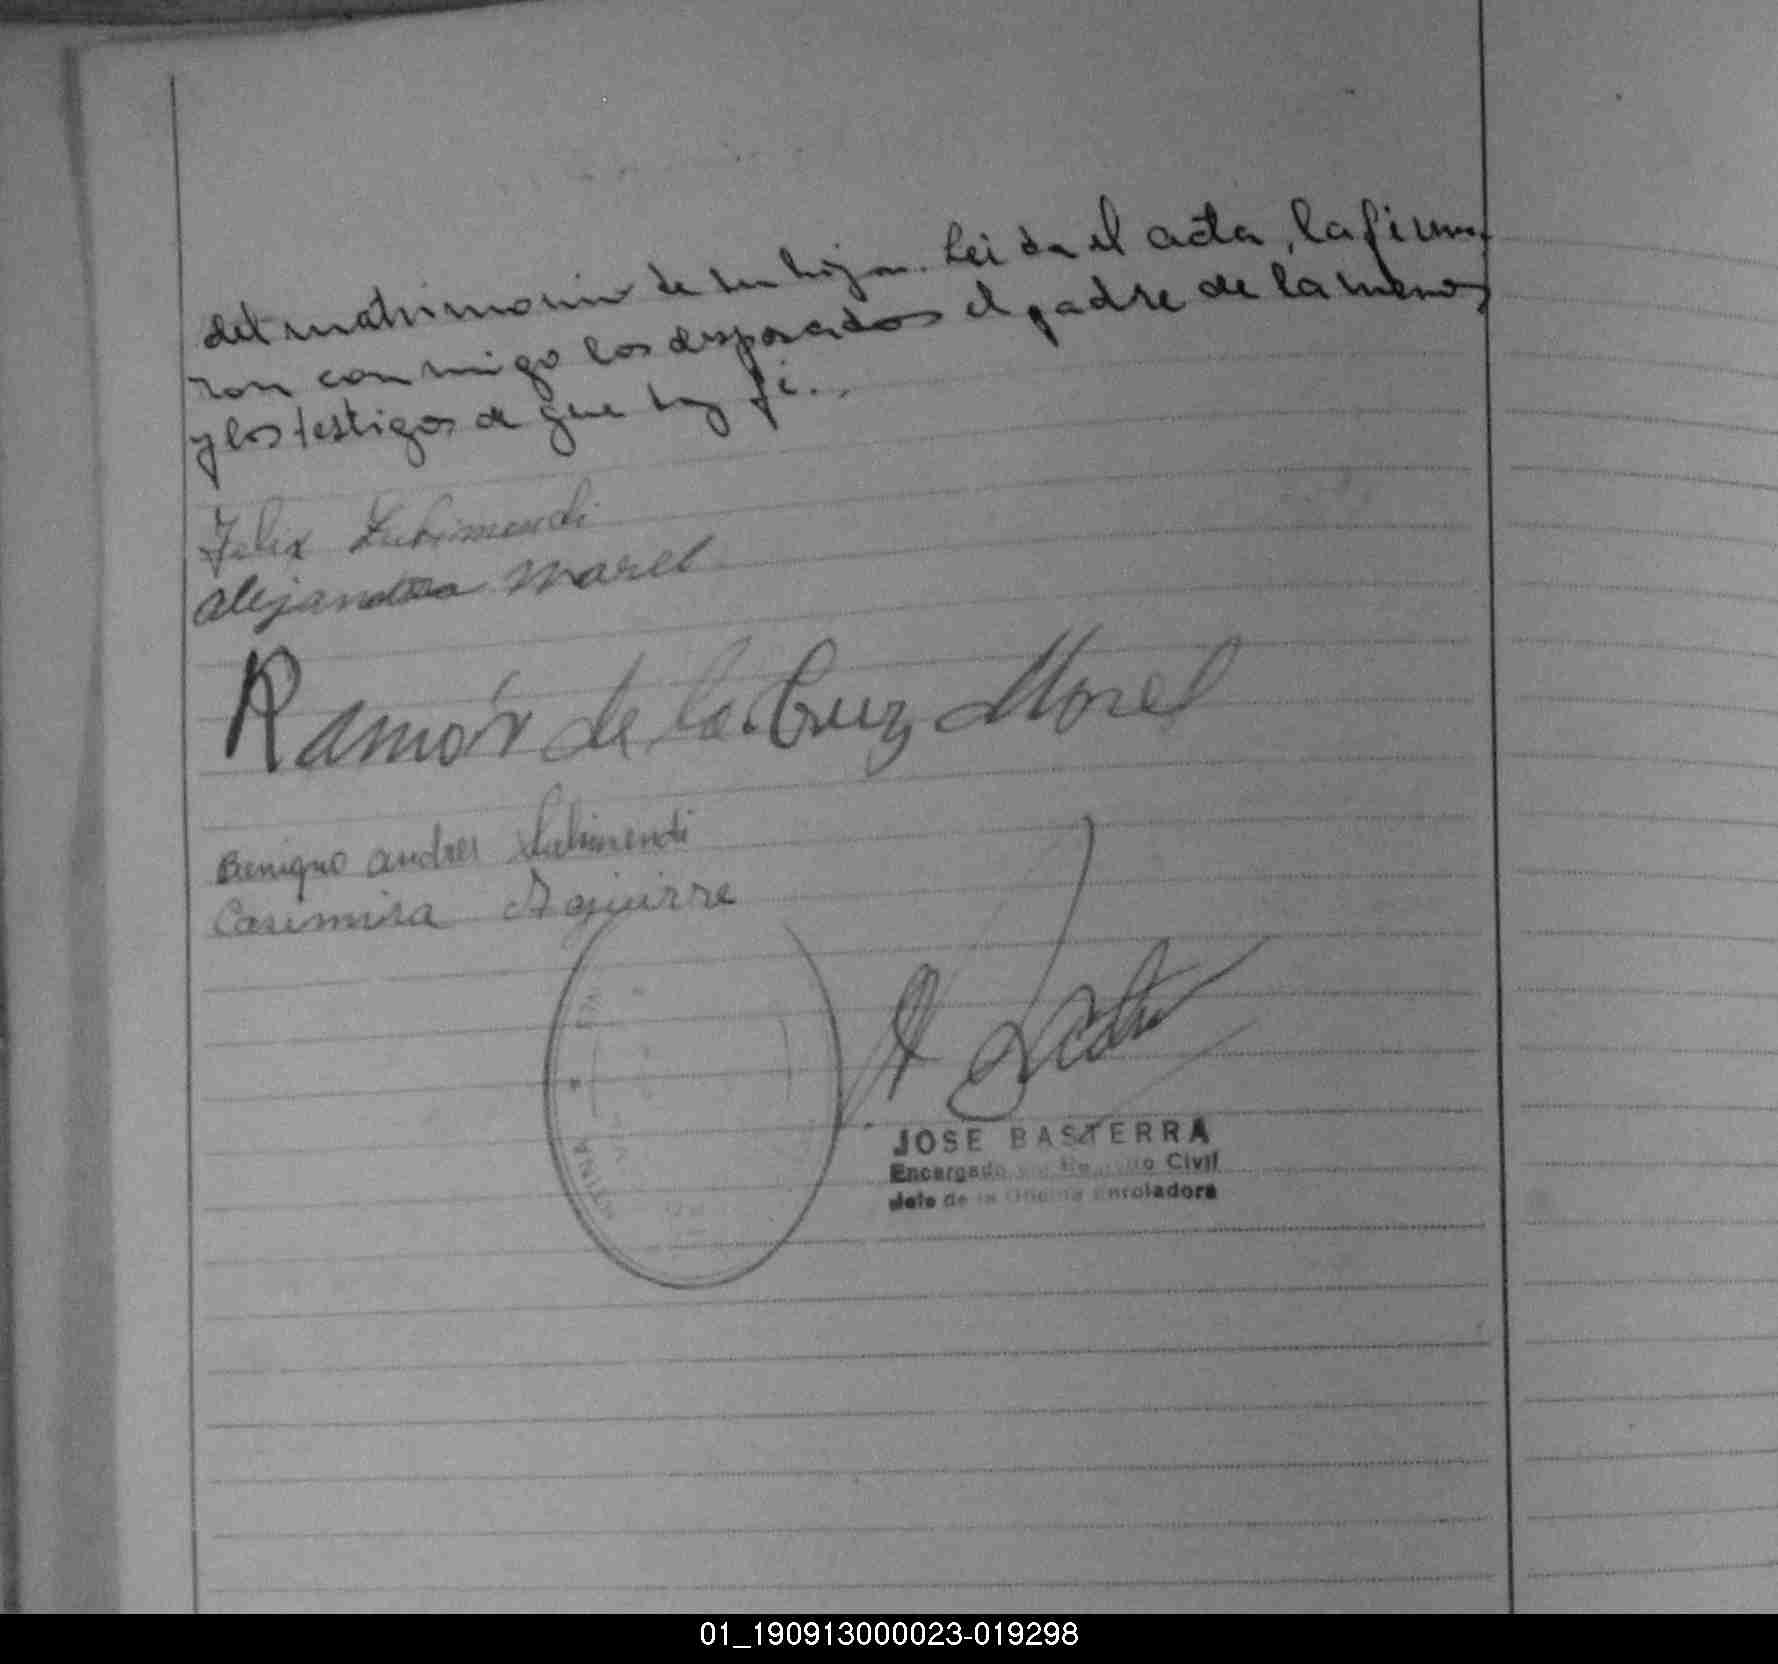 del matrimonio de su hija. Leida el acta, la firma
ron conmigo los desposados el padre de la menor
y los testigos de que doy fé..
Felix Lubimendi
Alejandra Morel
Ramón de la Cruz Morel
Benigno Andres Lubimendi
Casimira Aguirre
JOSE BASTERRA
Encargado Civil
Jefe de la Oficina Enroladora
01_190913000023-019298